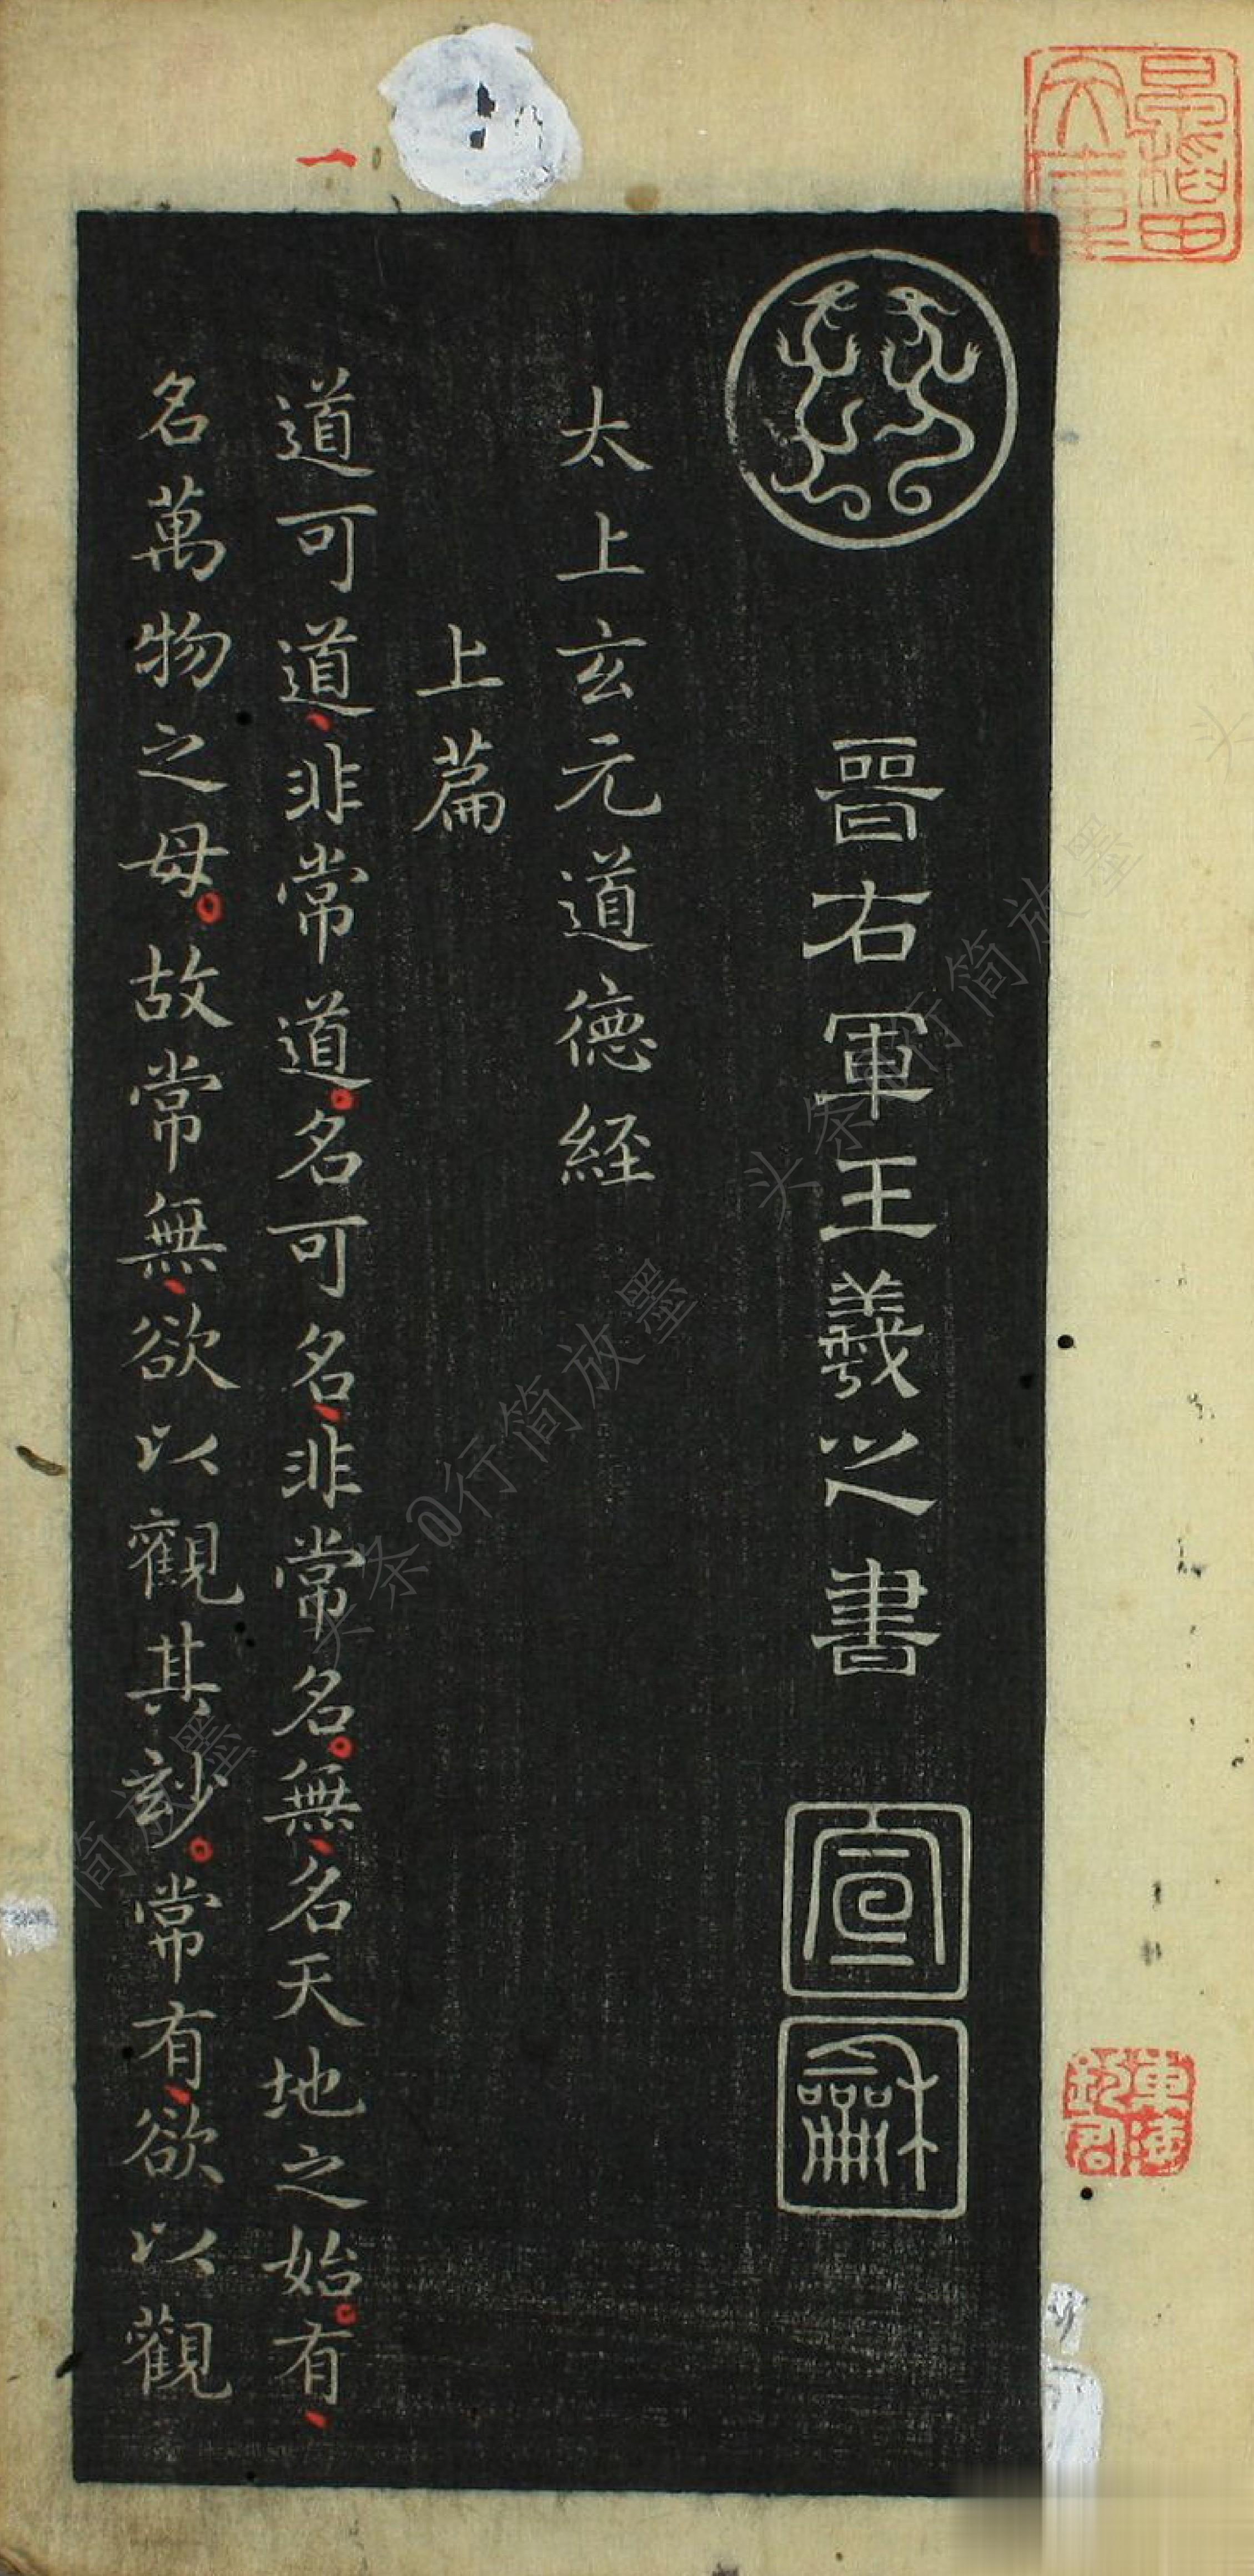 晉右軍王羲之書
宣
龢
太上玄元道德經
上篇
道可道、非常道。名可名、非常名。無、名天地之始。有、
名萬物之母。故常無、欲以觀其玅。常有、欲以觀
一
頭条@行简放墨